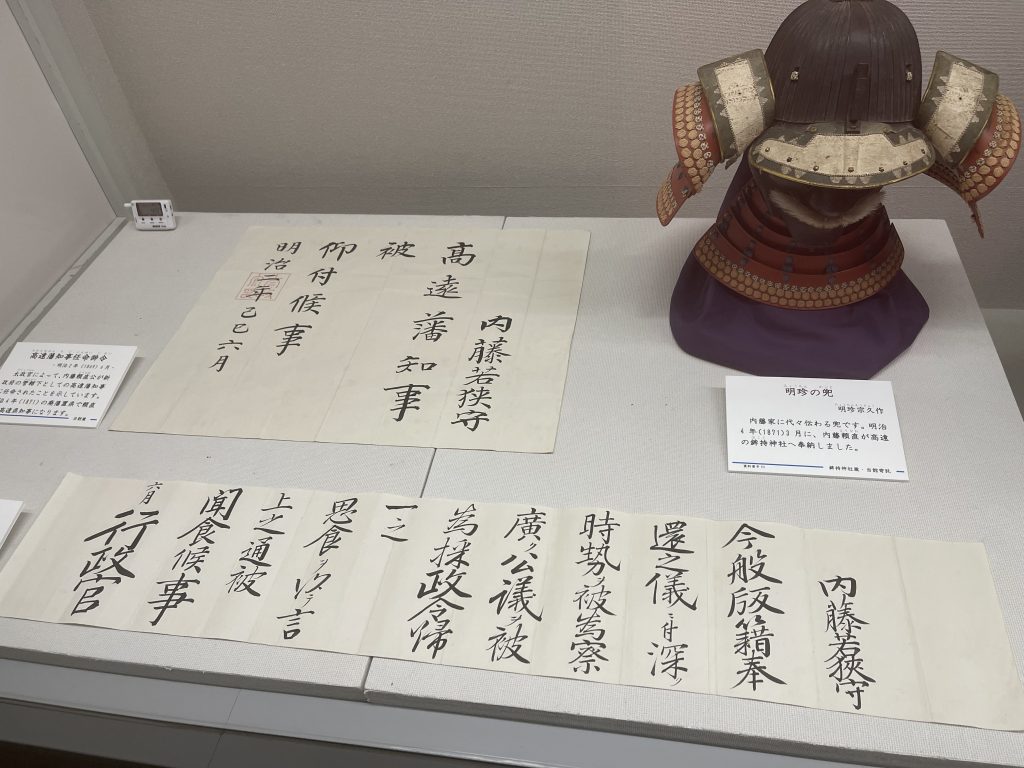 内藤若狭守
高遠藩知事
被
仰付候事
明治二年己巳六月
高遠藩知事任命辞令
・明治2年(1869)6月・
太政官によって、内藤頼直公が新
政府の管轄下としての高遠藩知事
に任命されたことを示しています。
治4年(1871)の廃藩置県で頼直
高遠県知事になります。
当館蔵
明珍の兜
明珍宗久作
内藤家に代々伝わる兜です。明治
4年(1871)3月に、内藤頼直が高遠
の鉾持神社へ奉納しました。
鉾持神社蔵・当館寄託
内藤若狭守
今般版籍奉
還之儀ニ付深ク
時勢ヲ被為察
廣ク公議ヲ被
為採政令帰
一之
思食ヲ以テ言
上之通被
聞食候事
六月
行政官